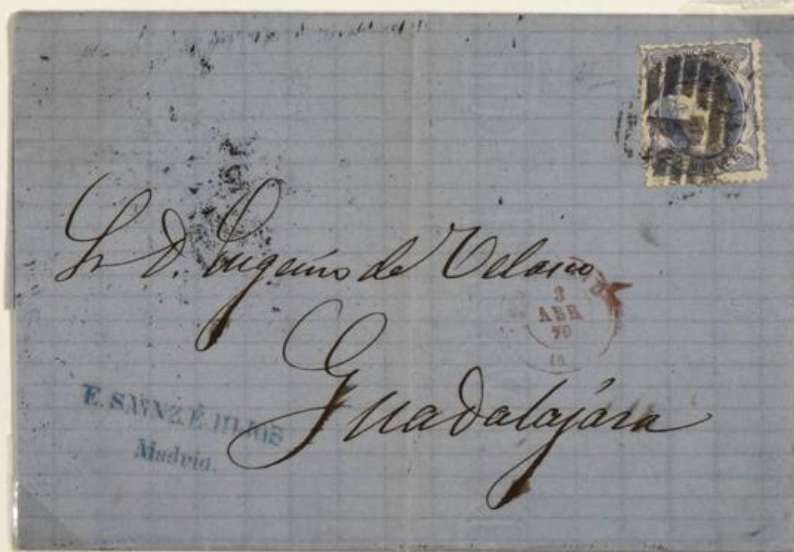 Sr D. Eugenio de Velasco
3
ABR
70
Guadalajára
E. SAINZ É HIJOS
Madrid.